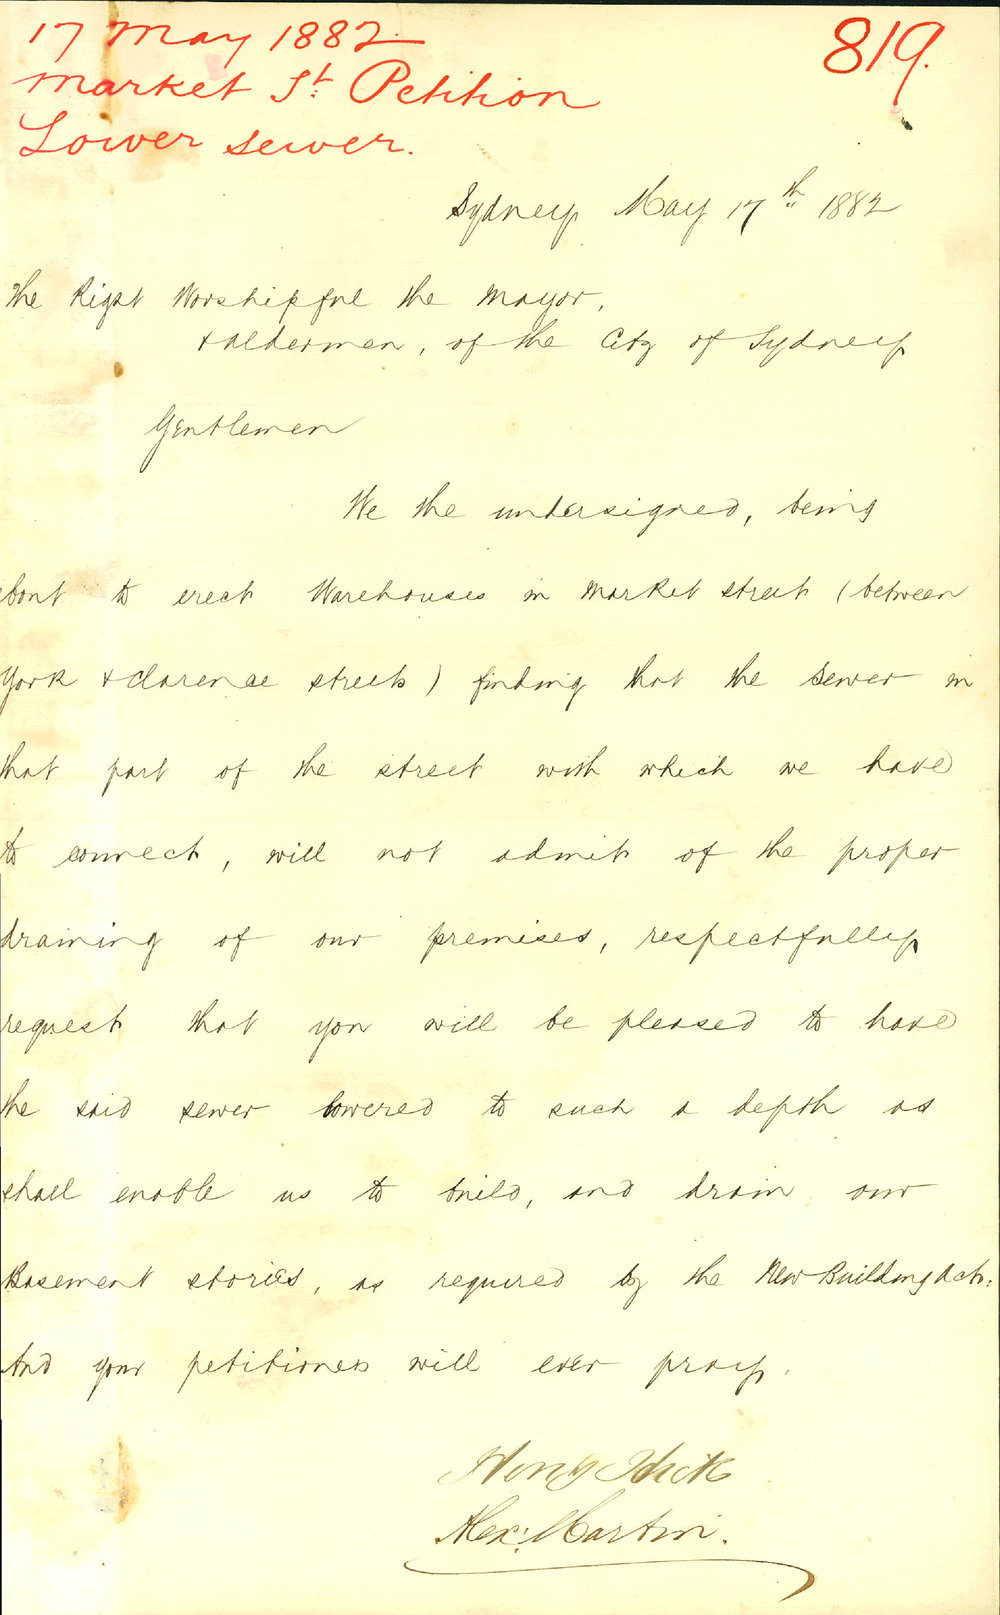 17 May 1882.
819.
Market St. Petition
Lower sewer.
Sydney May 17th 1882
The Right Worshipful the Mayor,
& Aldermen, of the City of Sydney
Gentlemen
We the undersigned, being
about to erect Warehouses in Market Street (between
York & Clarence streets) finding that the sewer in
that part of the street with which we have
to connect, will not admit of the proper
draining of our premises, respectfully
request that you will be pleased to have
the said sewer lowered to such a depth as
shall enable us to build, and drain our
Basement stories, as required by the New Building Act:
And your petitioners will ever pray.
Henry
Alex: Martin.